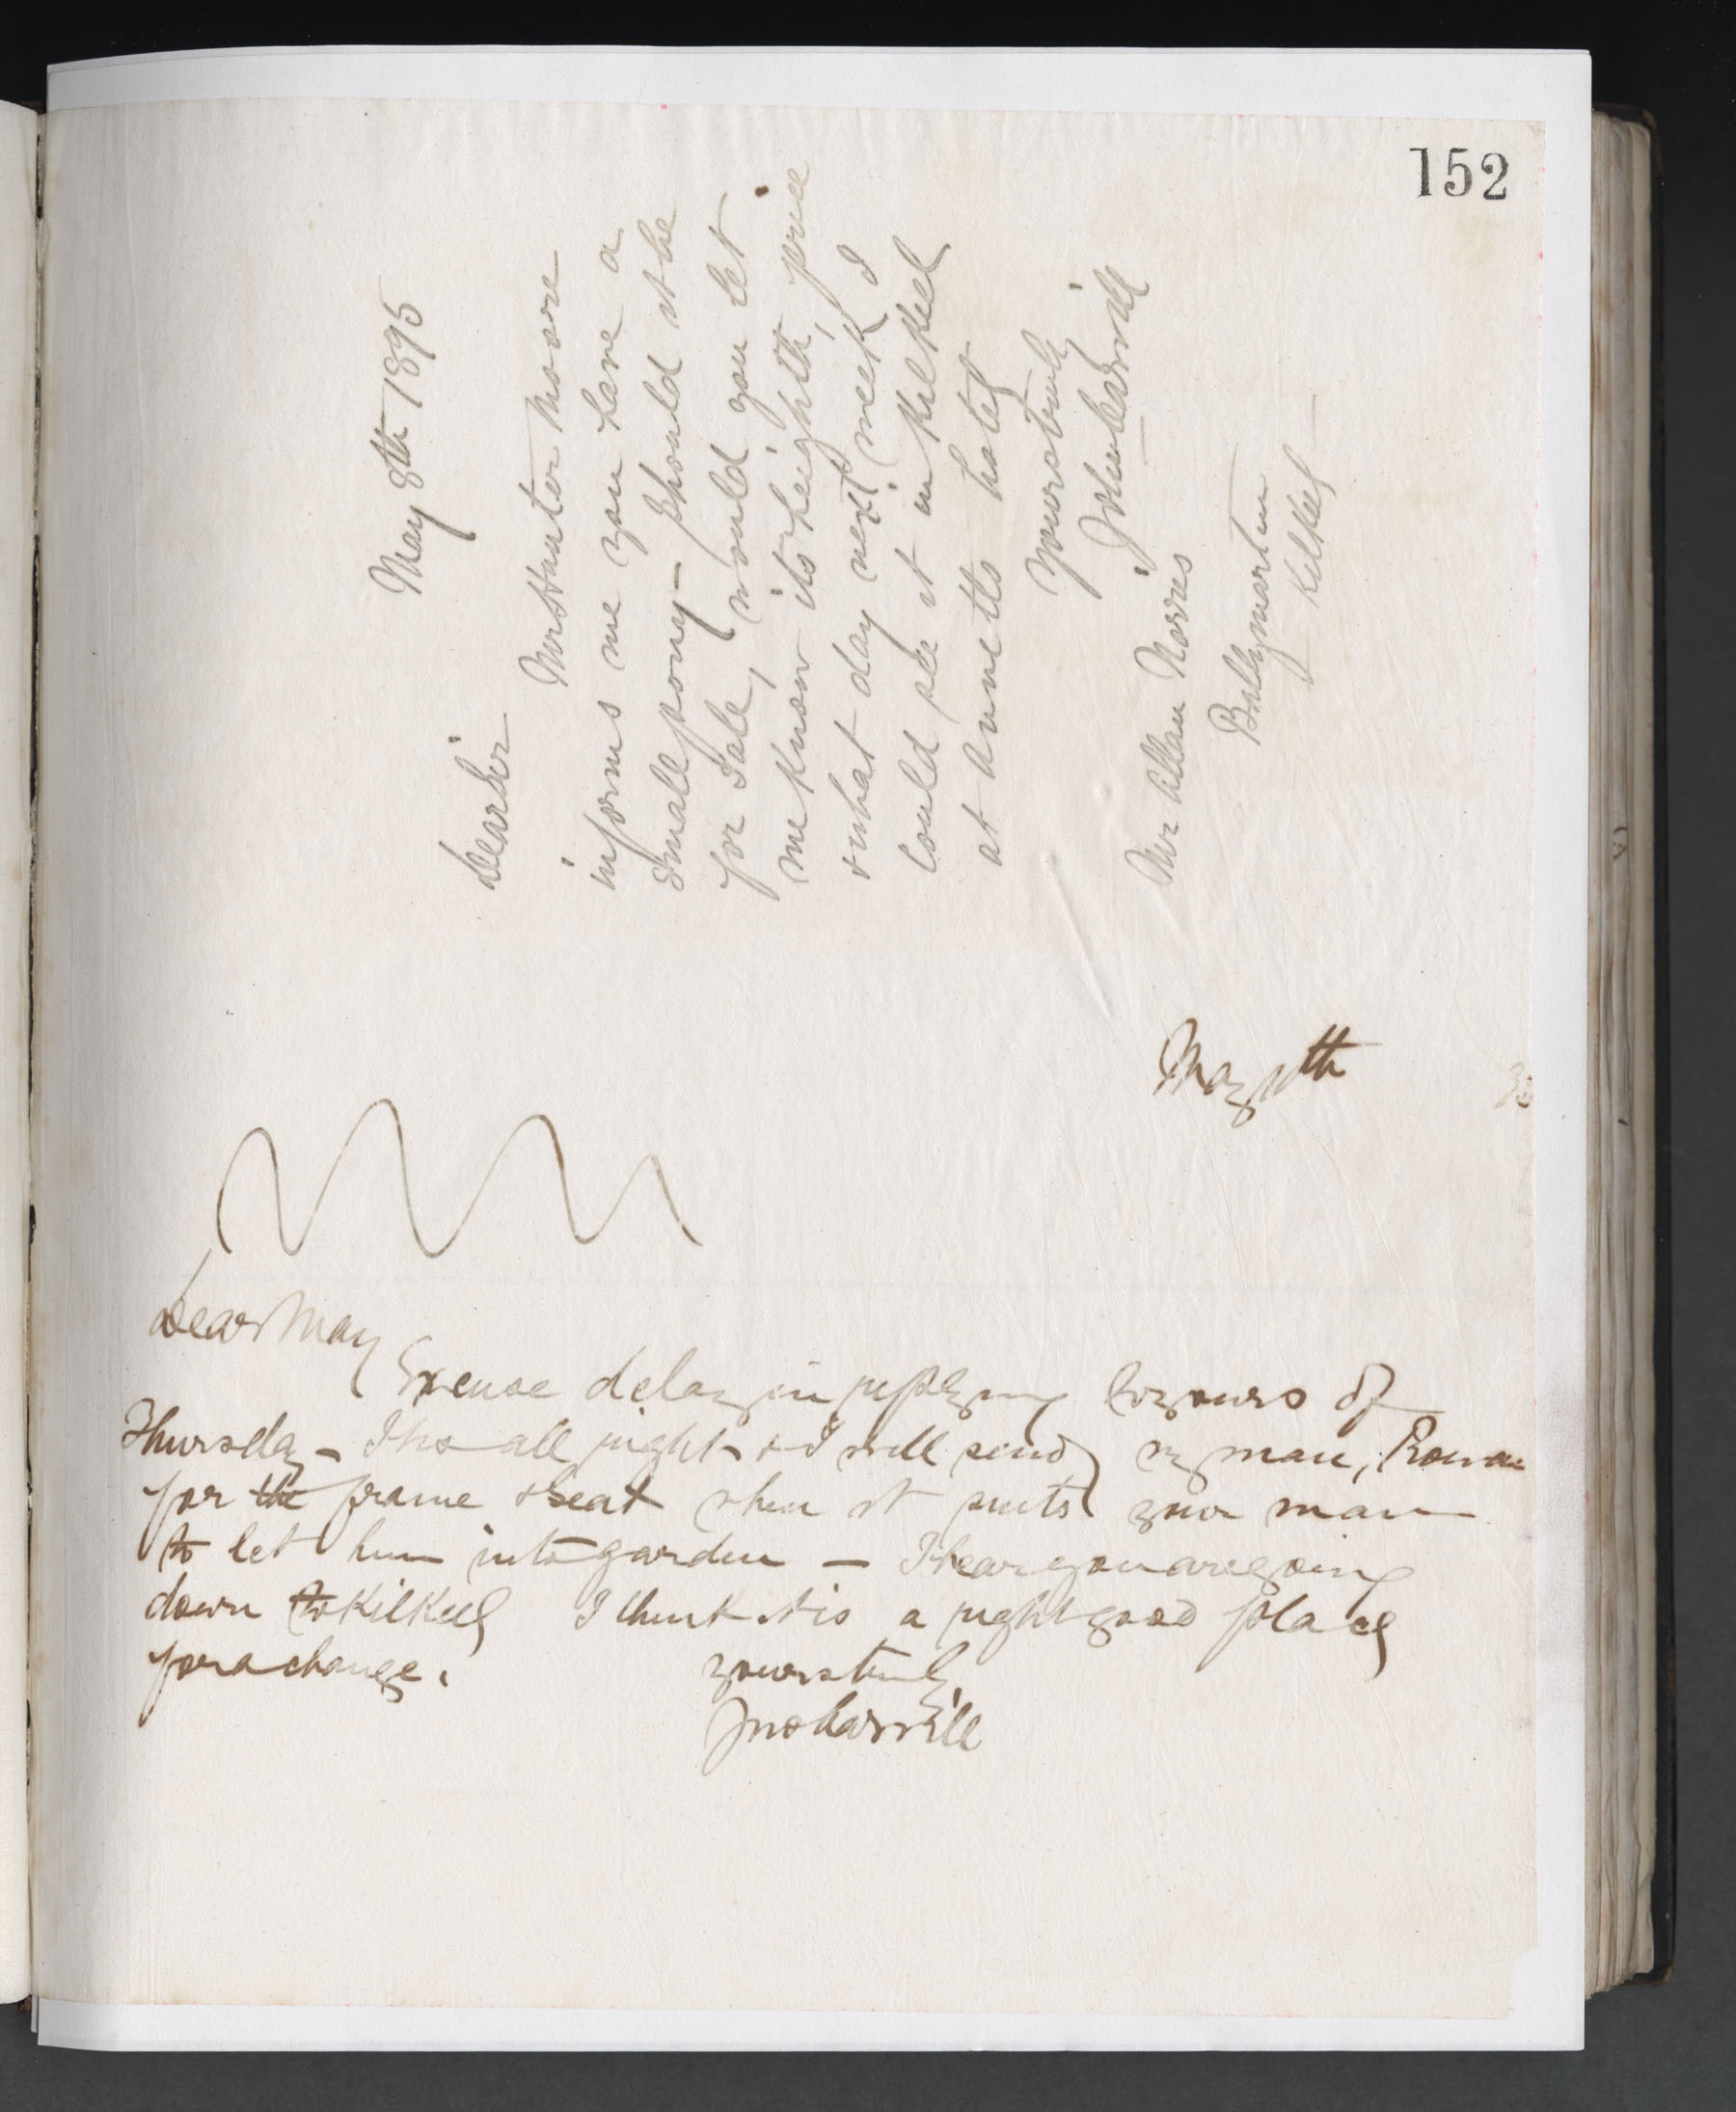 152
May 8th 1895
Dear Sir
Mr Hunter Moore
informs me you have a
small pony - Should it be
for Sale, would you let
me know its heighth, price
& what day next week I
could see it in Kilkeel
at Annetts hotel
yours truly
John Carvill
Mr Allan Norris
Ballymartin
Kilkeel
May th
Dear May
Excuse delay in replying to yours of
Thursday - It is all right & I will send my man, Rowan
for the frame & seat when it suits your man
to let him into garden — I hear you are going
down to Kilkeel I think it is a right good place
for a change.
yours truly
Jno Carvill